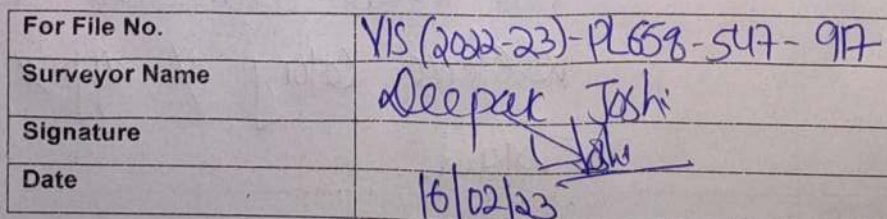 For File No. VIS (2022-23)-PL658-547-917
Surveyor Name Deepak Joshi
Signature Joshi
Date 16/02/23